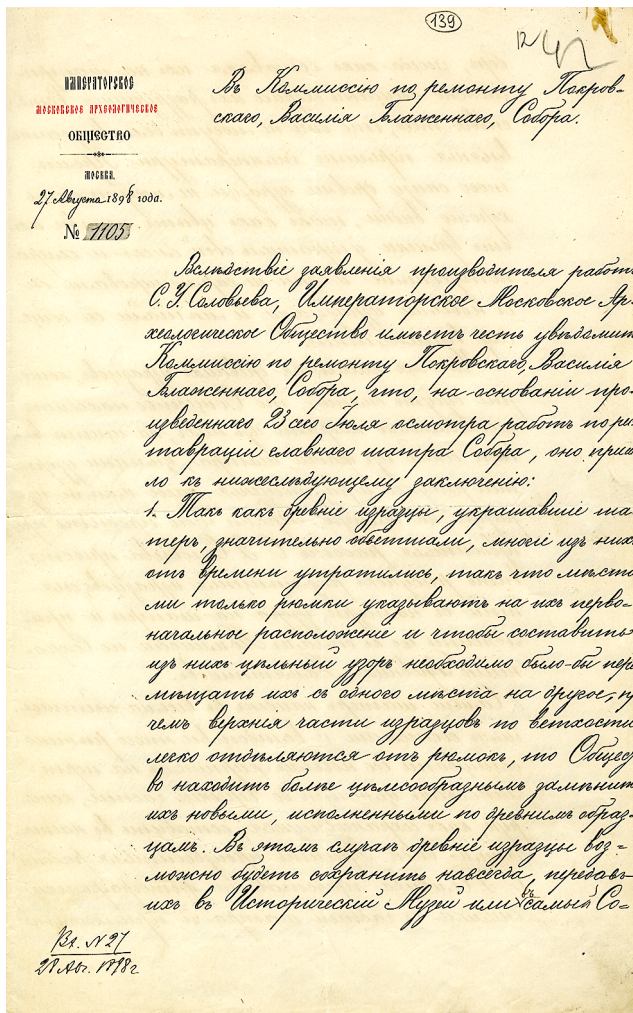 139
12
ИМПЕРАТОРСКОЕ
МОСКОВСКОЕ АРХЕОЛОГИЧЕСКОЕ
ОБЩЕСТВО
МОСКВА.
27 Августа 1898 года.
№ 1105
Въ Коммиссію по ремонту Покров-
скаго, Василія Блаженнаго, Собора.
Вслѣдствіе заявленія производителя работъ
С. У. Соловьева, Императорское Московское Ар-
хеологическое Общество имѣетъ честь увѣдомить
Коммиссію по ремонту Покровскаго, Василія
Блаженнаго, Собора, что, на основаніи про-
изведеннаго 23 сего Іюля осмотра работъ по рес
тавраціи главнаго шатра Собора, оно приш
ло къ нижеслѣдующему заключенію:
1. Такъ какъ древніе изразцы, украшавшіе ша-
теръ, значительно обветшали, многіе изъ нихъ
отъ времени утратились, такъ что мѣста
ми только рюмки указываютъ на ихъ перво-
начальное расположеніе и чтобы составить
изъ нихъ цѣльный узоръ необходимо было-бы пере
мѣщать ихъ съ одного мѣста на другое, пр
чемъ верхнія части изразцовъ по ветхости
легко отдѣляются отъ рюмокъ, то Общест
во находитъ болѣе цѣлесообразнымъ замѣнить
ихъ новыми, исполненными по древнимъ образ-
цамъ. Въ этомъ случаѣ древніе изразцы воз-
можно будетъ сохранить навсегда, передавъ
ихъ въ Историческій Музей или въ самый Со-
Вх. № 27
28 Авг. 1898 г